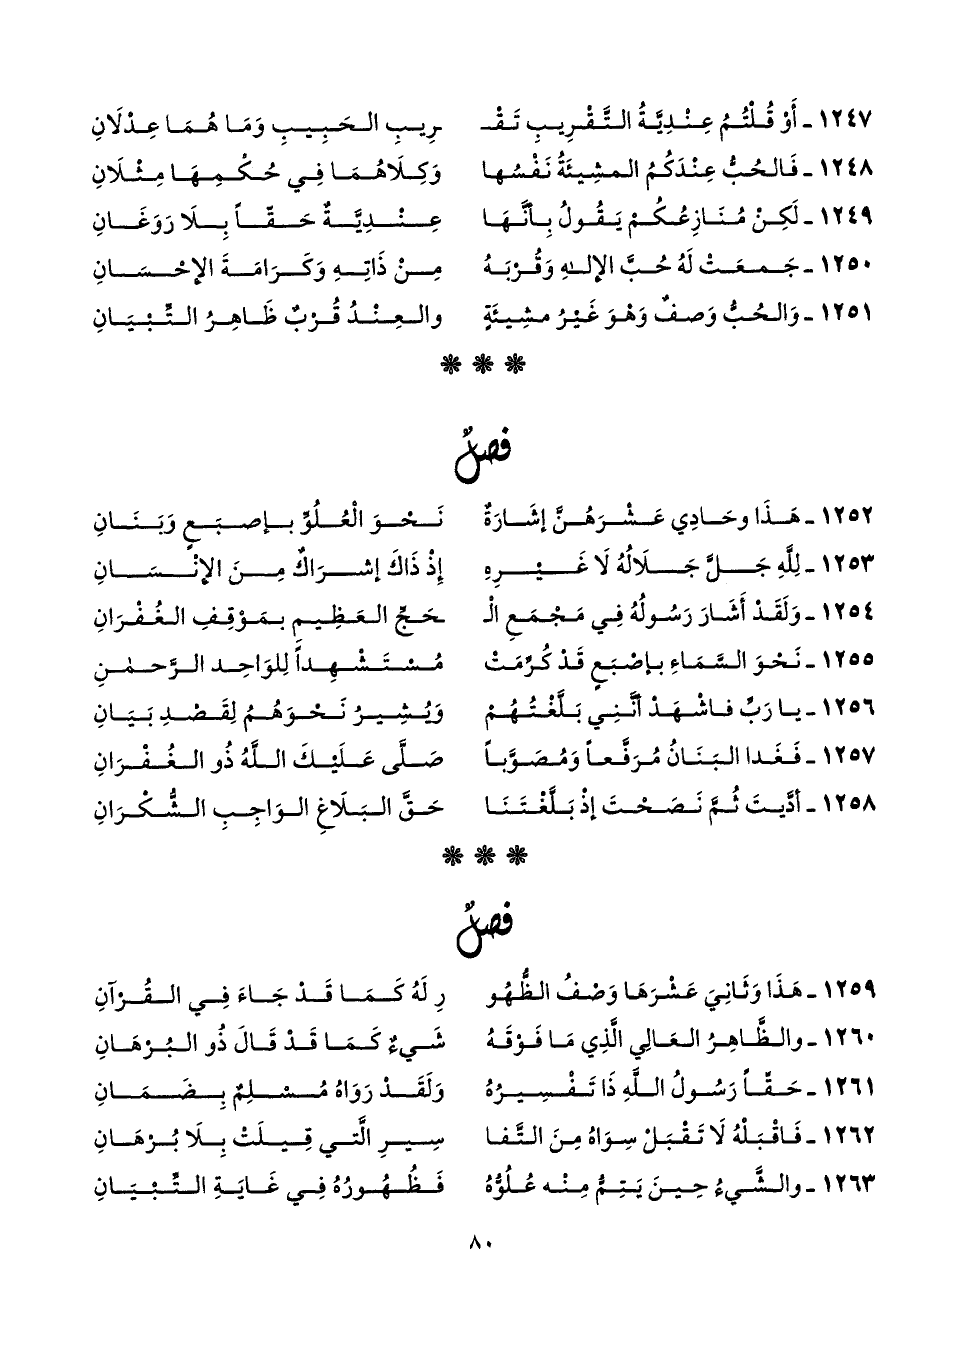 ١٢٤٧ ـ أَوْ قُلْتُمُ عِنْدِيَّةُ التَّقْرِيبِ تَقْـ رِيبِ الحَبِيبِ وَمَا هُمَا عِدْلَانِ
١٢٤٨ ـ فَالحُبُّ عِنْدَكُمُ المشِيئَةُ نَفْسُها وَكِلَاهُمَا فِي حُكْمِهَا مِثْلَانِ
١٢٤٩ ـ لَكِنْ مُنَازِعُكُمْ يَقُولُ بِأَنَّهَا عِنْدِيَّةٌ حَقّاً بِلَا رَوَغَانِ
١٢٥٠ ـ جَمعَتْ لَهُ حُبَّ الإِلهِ وَقُرْبَهُ مِنْ ذَاتِهِ وَكَرَامَةَ الإِحْسَانِ
١٢٥١ ـ وَالحُبُّ وَصفٌ وَهْوَ غَيْرُ مشِيئَةٍ والعِنْدُ قُرْبٌ ظَاهِرُ التِّبْيَانِ
❋ ❋ ❋
فصلٌ
١٢٥٢ ـ هَذَا وحَادِي عَشْرَهُنَّ إشَارَةٌ نَحْوَ الْعُلُوِّ بِإصبَعٍ وَبَنَانِ
١٢٥٣ ـ لِلَّهِ جَلَّ جَلَالُهُ لَا غَيْرِهِ إِذْ ذَاكَ إشْرَاكٌ مِنَ الإنْسَانِ
١٢٥٤ ـ وَلَقَدْ أَشَارَ رَسُولُهُ فِي مَجْمَعِ الْـ ـحَجِّ العَظِيمِ بِمَوْقِفِ الغُفْرَانِ
١٢٥٥ ـ نَحْوَ السَّمَاءِ بِإصْبَعٍ قَدْ كُرِّمَتْ مُسْتَشْهِداً لِلوَاحِدِ الرَّحمٰنِ
١٢٥٦ ـ يا رَبِّ فاشْهَدْ أنَّنِي بَلَّغْتُهُمْ وَيُشِيرُ نَحْوَهُمُ لِقَصْدِ بَيَانِ
١٢٥٧ ـ فَغَدا البَنَانُ مُرَفَّعاً وَمُصَوَّباً صَلَّى عَلَيْكَ اللَّهُ ذُو الغُفْرَانِ
١٢٥٨ ـ أدَّيتَ ثُمَّ نَصَحْتَ إذْ بَلَّغْتَنَا حَقَّ البَلَاغِ الوَاجِبِ الشُّكْرَانِ
❋ ❋ ❋
فصلٌ
١٢٥٩ ـ هَذَا وَثَانِيَ عَشْرَهَا وَصْفُ الظُّهُو رِ لَهُ كَمَا قَدْ جَاءَ فِي القُرْآنِ
١٢٦٠ ـ والظَّاهِرُ العَالِي الَّذِي مَا فَوْقَهُ شَيءٌ كَمَا قَدْ قَالَ ذُو البُرْهَانِ
١٢٦١ ـ حَقّاً رَسُولُ اللَّهِ ذَا تَفْسِيرُهُ وَلَقَدْ رَوَاهُ مُسْلِمٌ بِضَمَانِ
١٢٦٢ ـ فَاقْبَلْهُ لَا تَقْبَلْ سِوَاهُ مِنَ التَّفا سِيرِ الَّتي قِيلَتْ بِلَا بُرْهَانِ
١٢٦٣ ـ والشَّيءُ حِينَ يَتِمُّ مِنْه عُلُوُّهُ فَظُهُورُهُ فِي غَايَةِ التِّبْيَانِ
٨٠